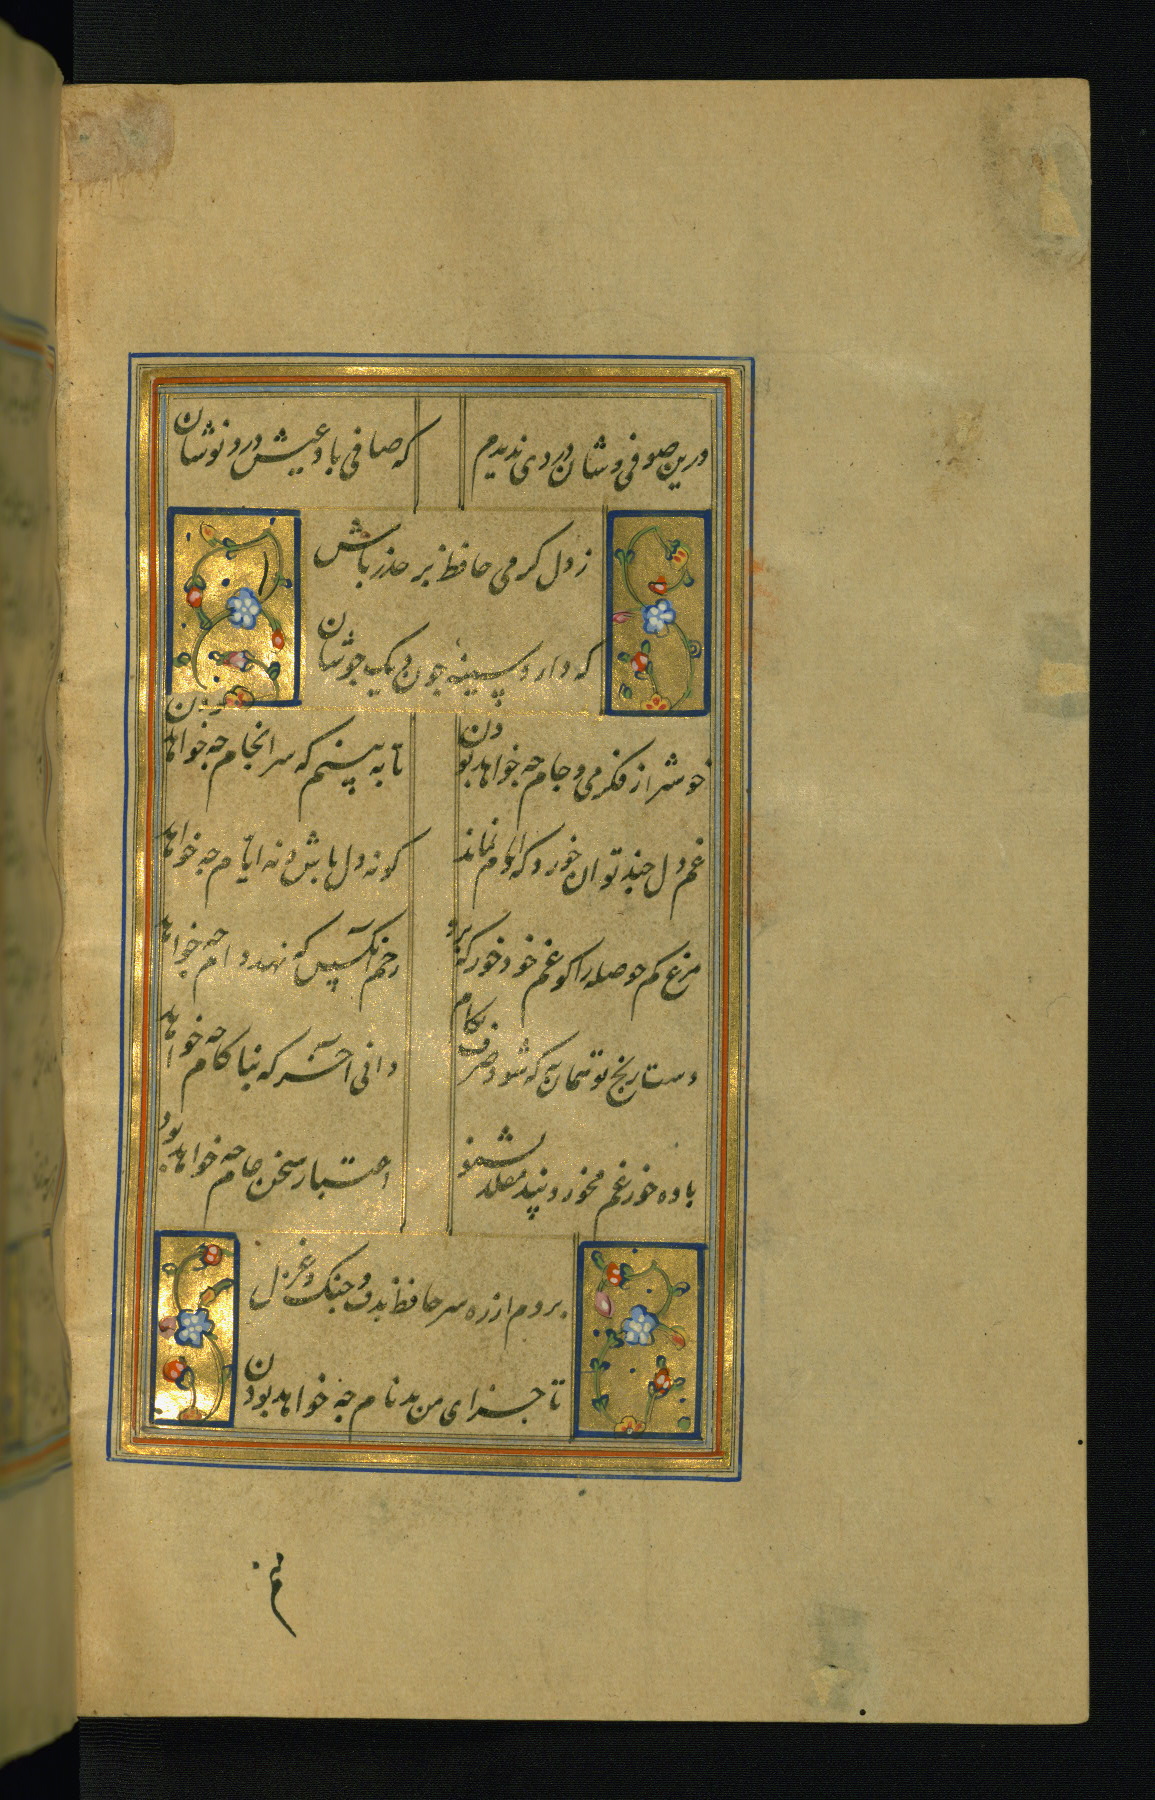 درین صوفی وشان دردی ندیدم
که صافی باد عیش دردنوشان
ز دل گرمی حافظ بر حذر باش
که دارد سینه چون دیک جوشان
خوشتر از فکر می و جام چه خواهد بودن
تا به بینم که سرانجام چه خواهد بودن
غم دل چند توان خورد که ایام نماند
کو نه دل باش و نه ایام چه خواهد
مرغ کم حوصله را کو غم خود خور که برو
رحم انکس که نهد دام چه خواهد
دست رنج تو همان به که شود صرف بکام
دانی آخر که بنا کام چه خواهد
باده خور غم مخور و پند مقلد مشنو
اعتبار سخن عام چه خواهد بود
بردم از ره سر حافظ بدف و چنک و غزل
تا جزای من بدنام چه خواهد بودن